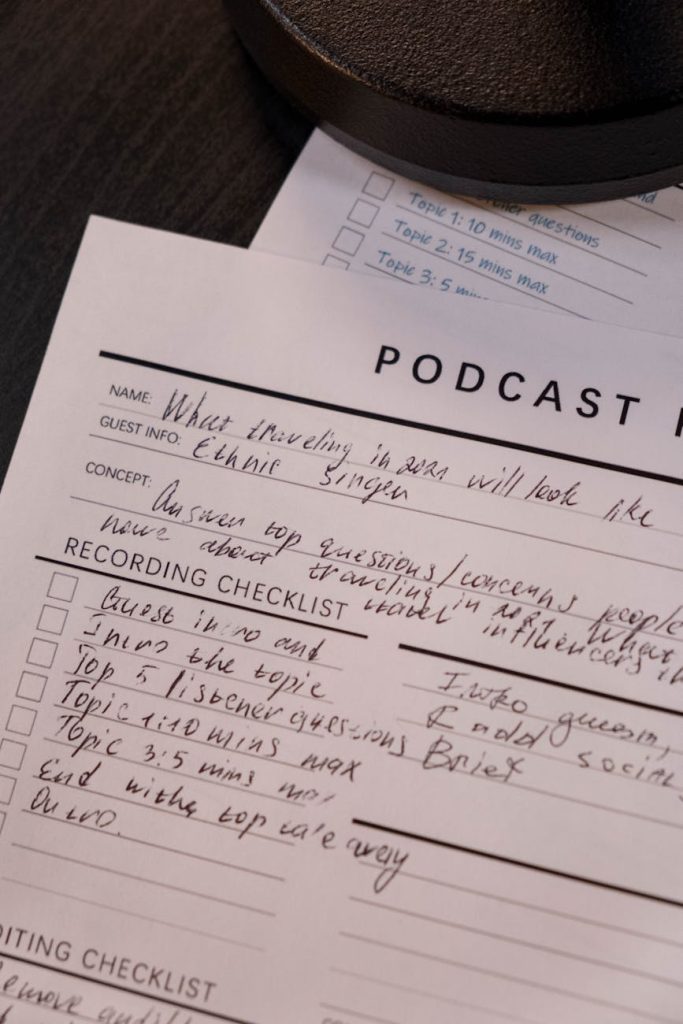 questions
Topic 1: 10 mins max
Topic 2: 15 mins max
Topic 3: 5
PODCAST
NAME: What traveling in 2021 will look like
GUEST INFO: Ethnie Singer
CONCEPT: Answer top questions/concerns people
about traveling in 2021 What
travel influencers
RECORDING CHECKLIST
Guest intro and
Intro the topic
Top 5 listener questions
Topic 1:10 mins max
Topic 3:5 mins
End with a top
Outro.
Intro
& add social
Brief
EDITING CHECKLIST